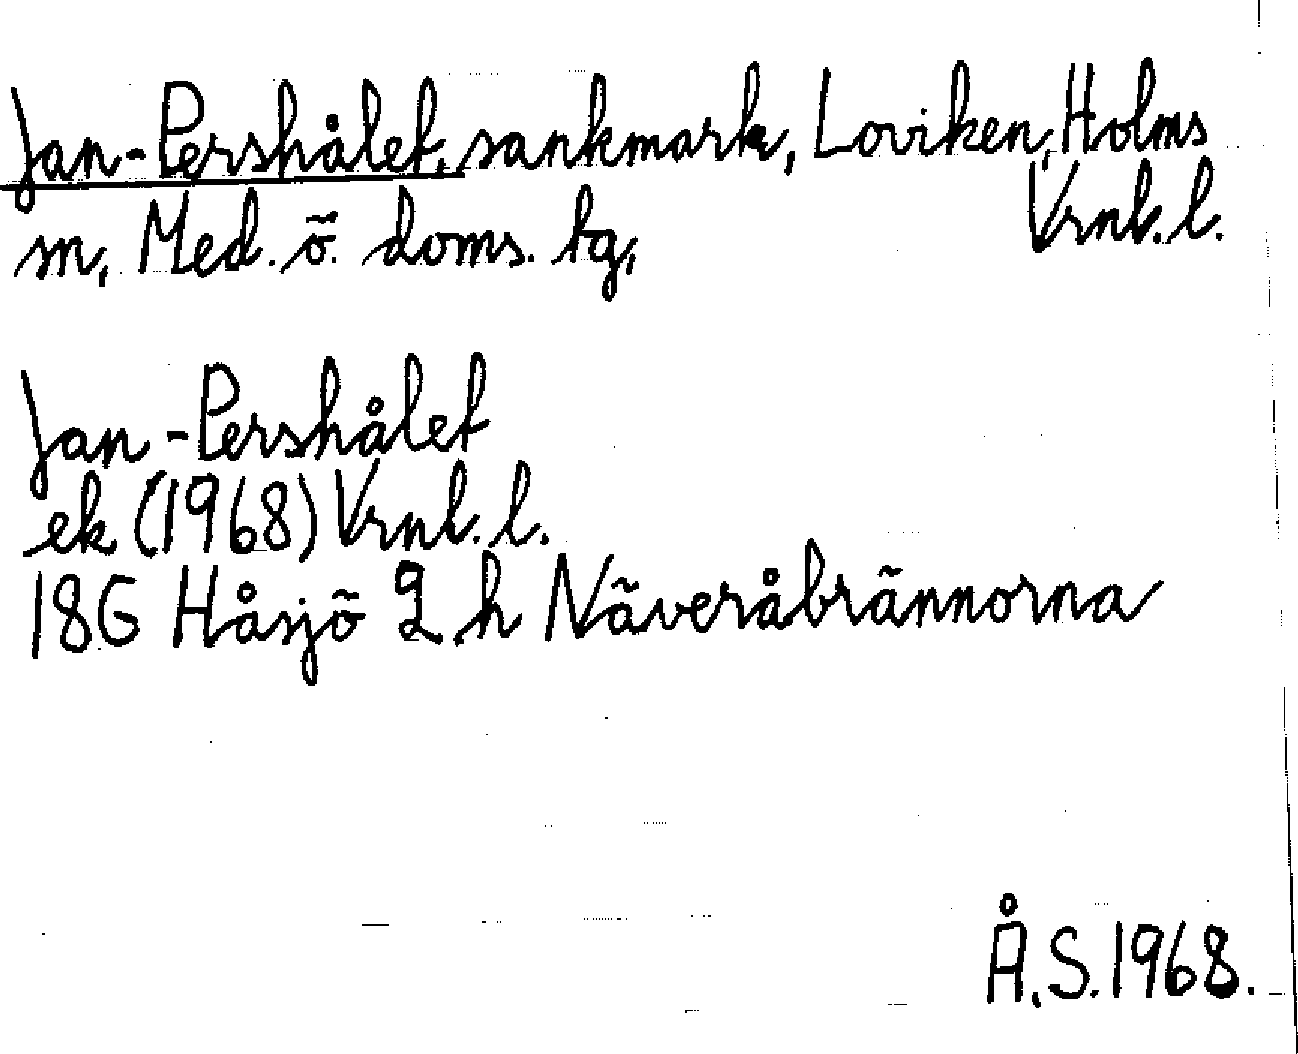 Jan-Pershålet, sankmark, Loviken, Holms
sn, Med. ö. doms. tg, Vrnl. l.
Jan-Pershålet
ek (1968) Vrnl. l.
18G Håsjö 2 h Näveråbrännorna
Å.S. 1968.